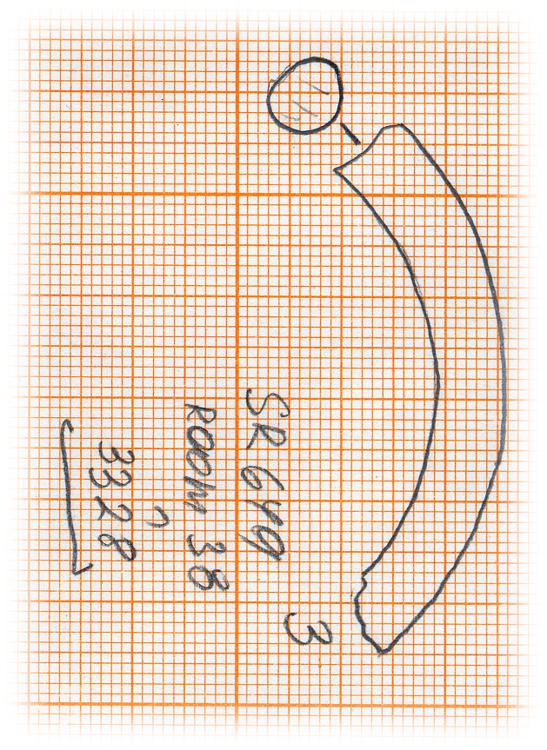 SR 649
ROOM 38
3328
3